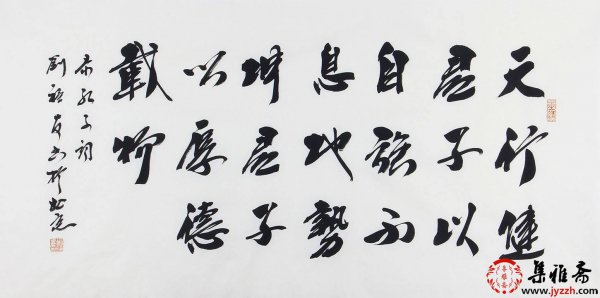 天行健
君子以
自強不
息地勢
坤君子
以厚德
載物
孔子詞
劉
集雅斋
www.jyzzh.com